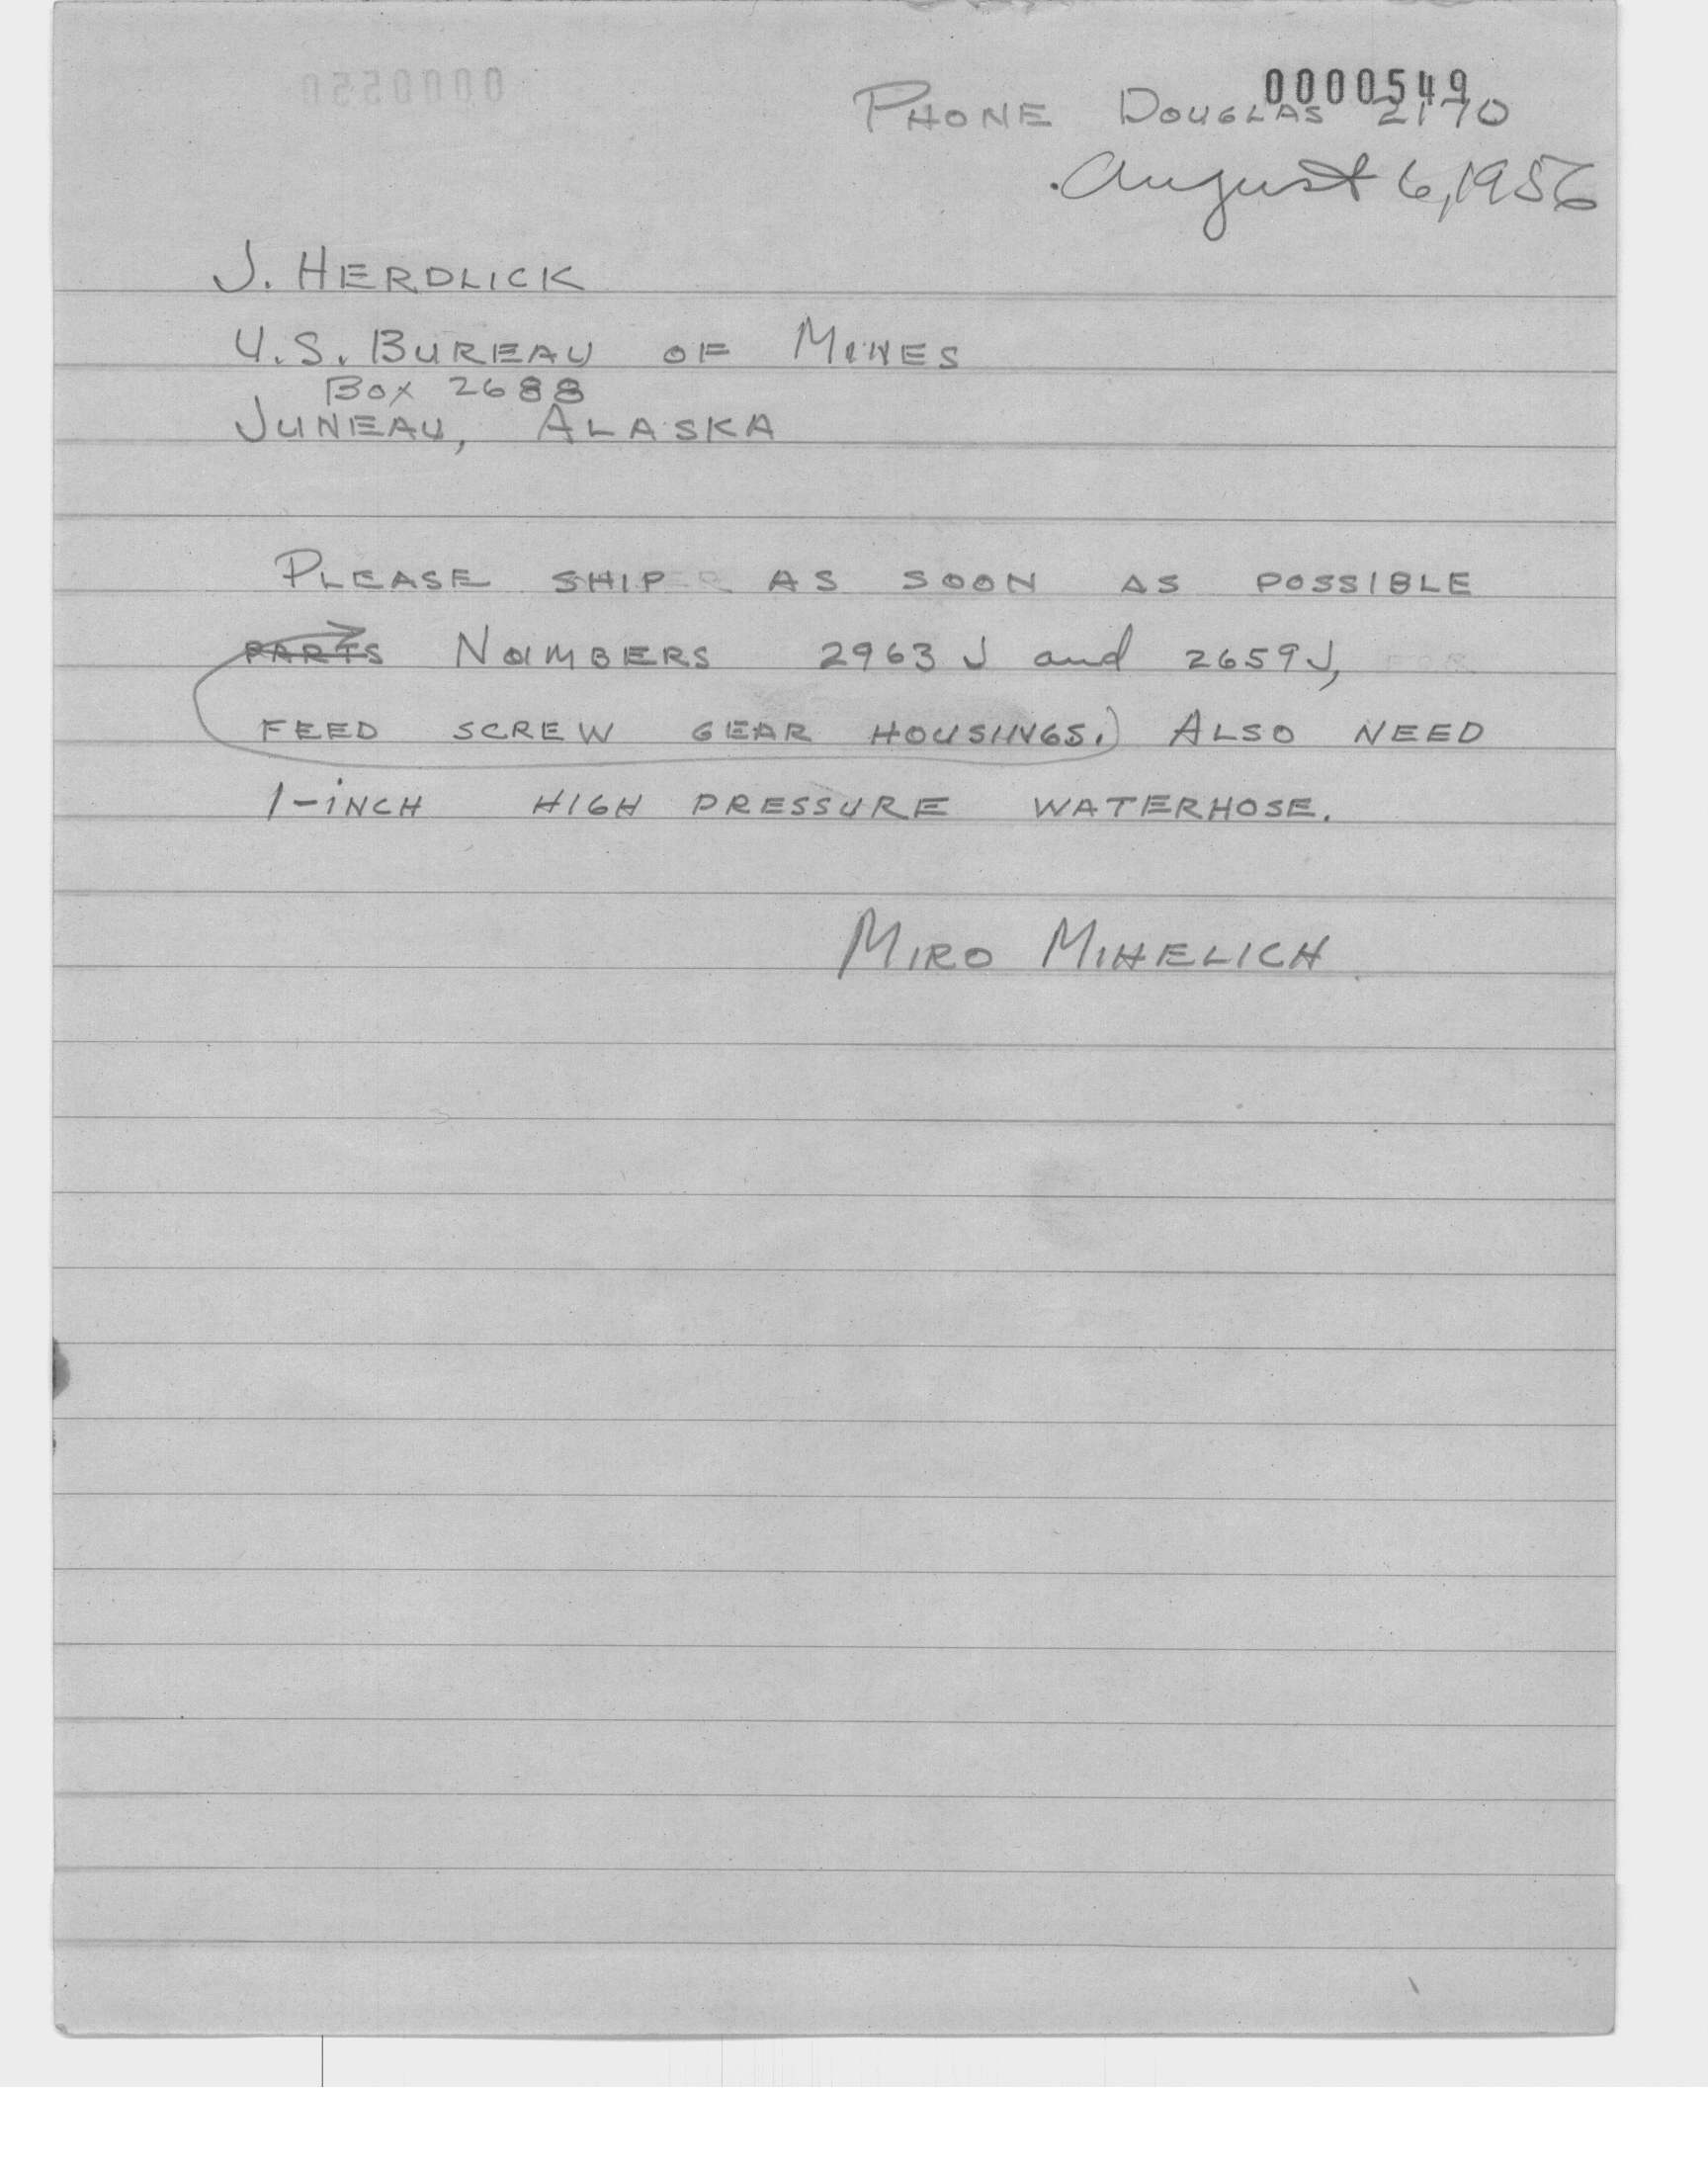 0000549
PHONE DOUGLAS 2170
August 6, 1956
J. HERDLICK
U.S. BUREAU OF MINES
BOX 2688
JUNEAU, ALASKA
PLEASE SHIP AS SOON AS POSSIBLE
PARTS NUMBERS 2963J and 2659J,
FEED SCREW GEAR HOUSINGS. ALSO NEED
1-INCH HIGH PRESSURE WATERHOSE.
MIRO MIHELICH